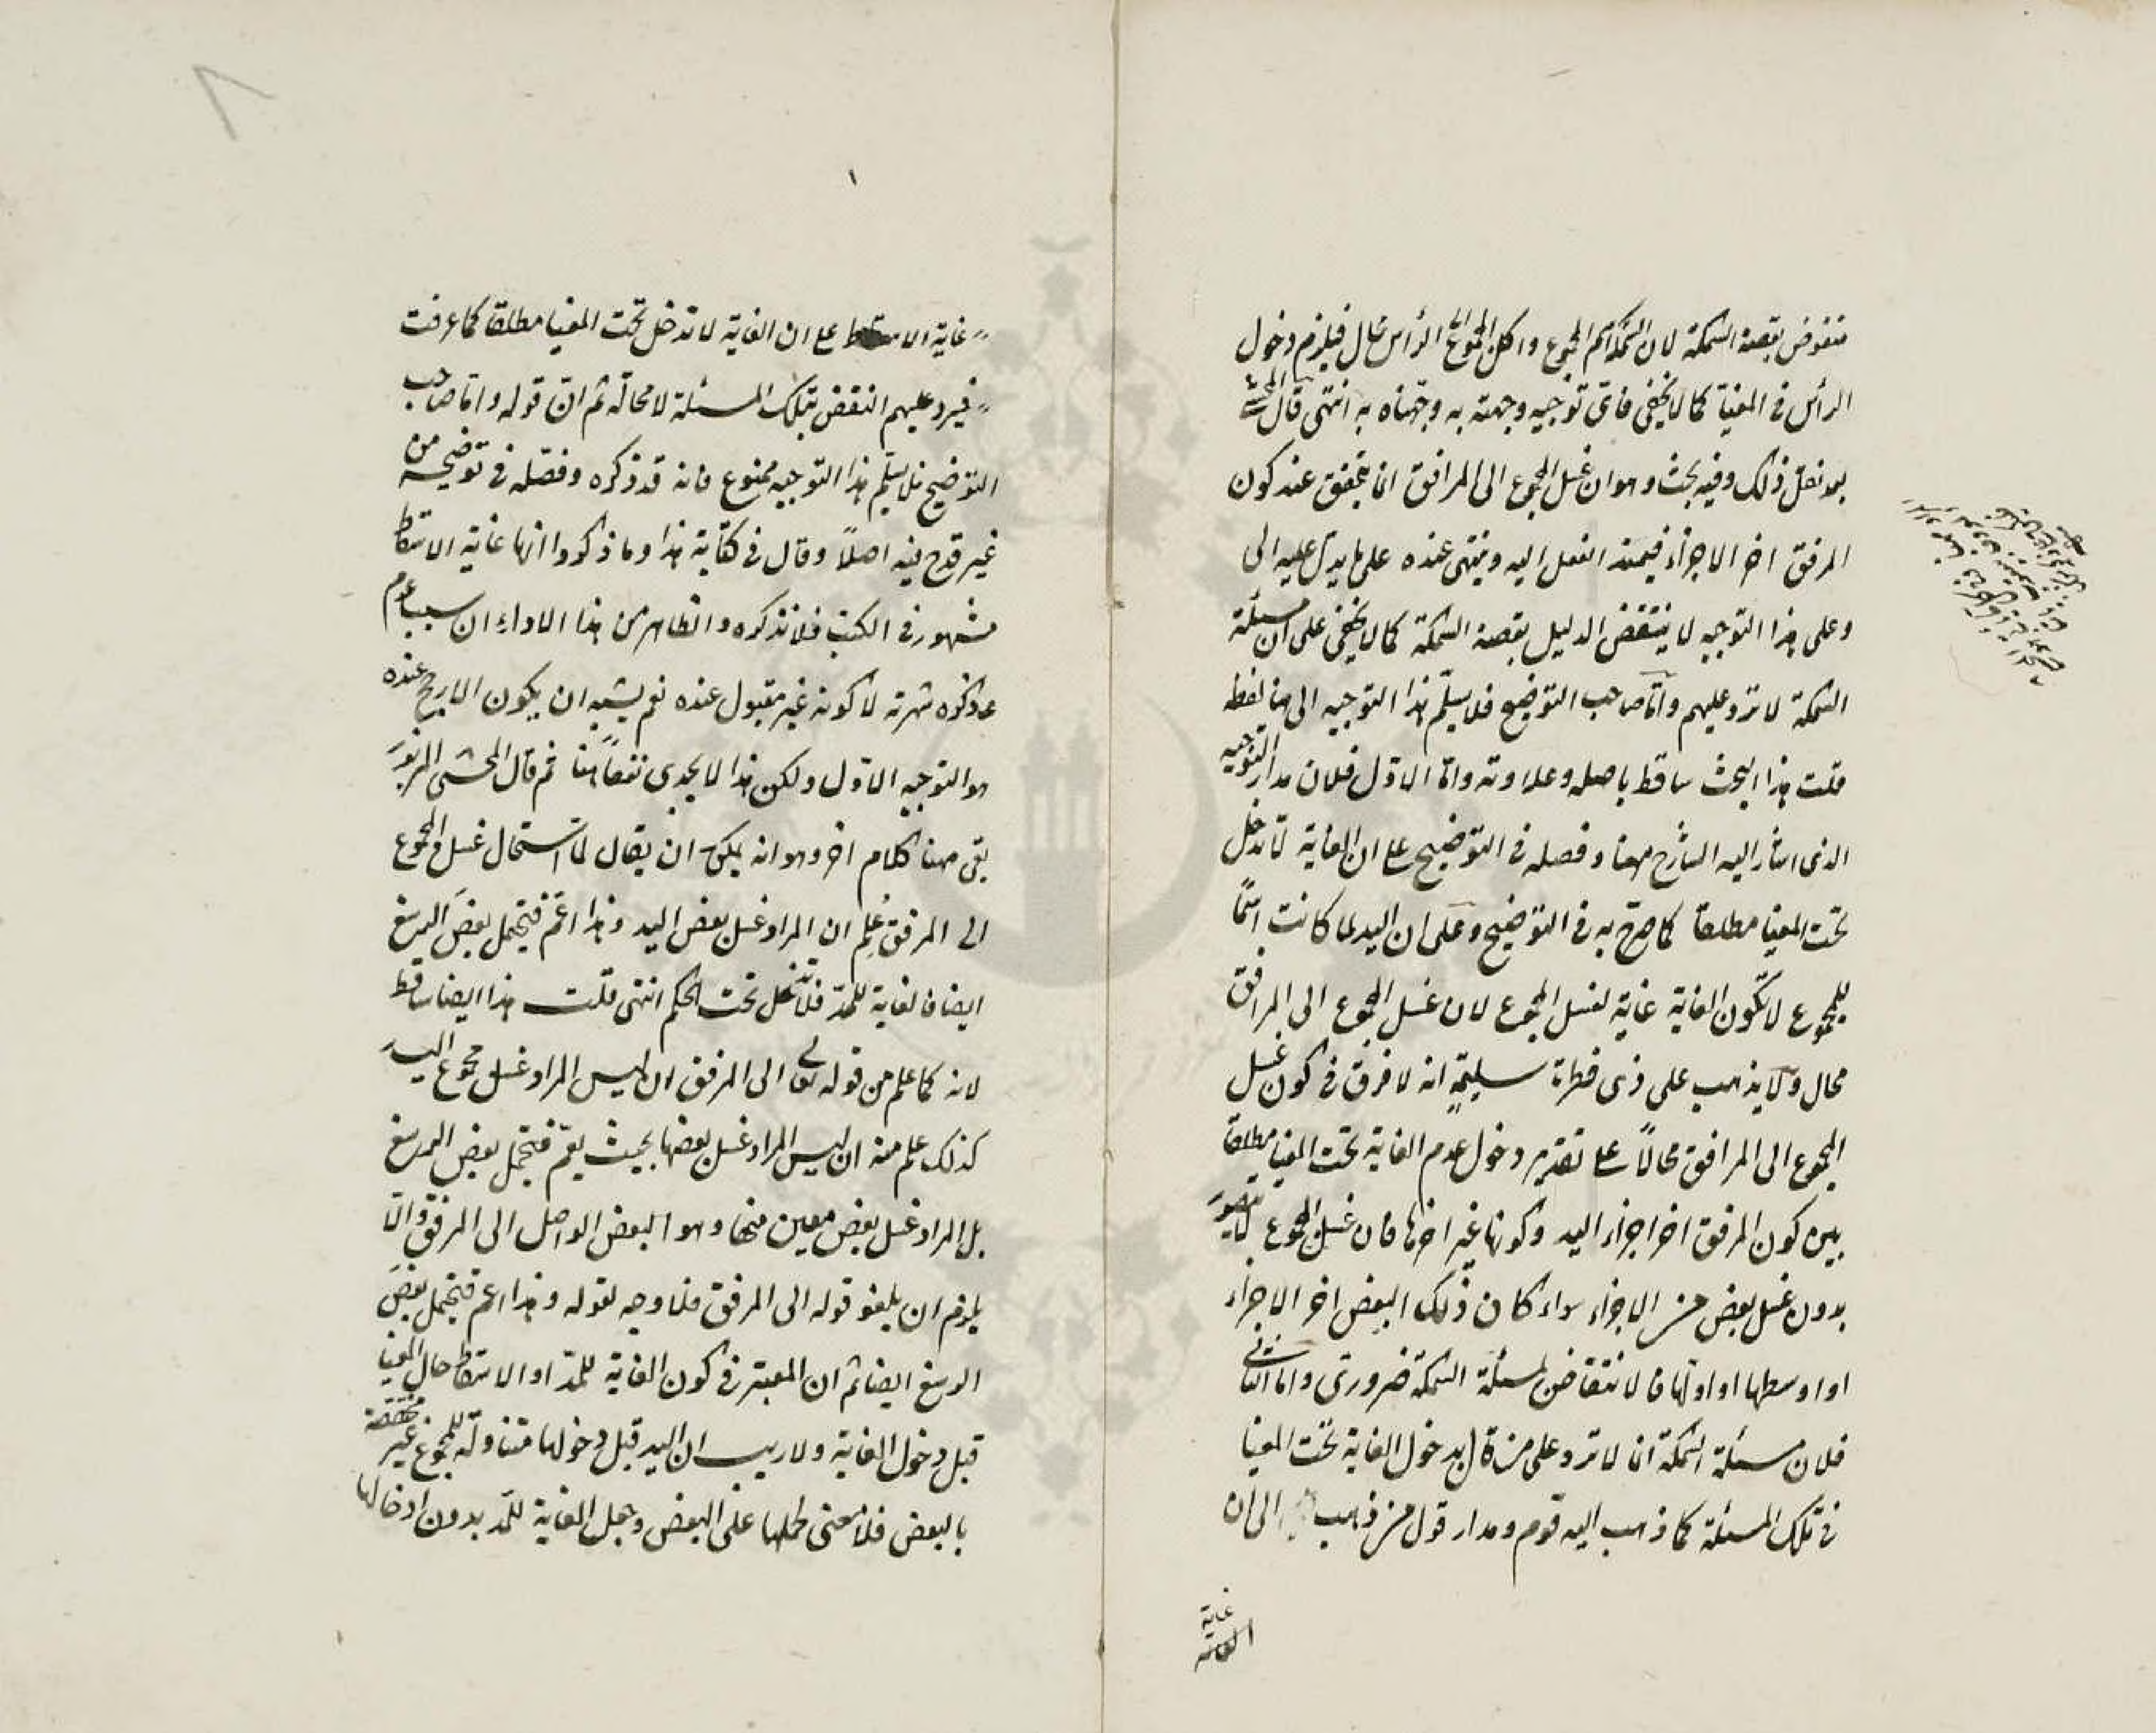 منقوض بقصة السمكة لان السمكة اسم المجموع واكل المجموع الى الرأس محال فيلزم دخول
الرأس فى المغيا كما لا يخفى فاى توجيه وجهته به وجهناه به انتهى قال المحشى
بعد نقل ذلك وفيه بحث وهو ان غسل المجموع الى المرافق انما يتحقق عند كون
المرفق اخر الاجزاء فيمتد الفعل اليه وينتهى عنده على ما يدل عليه الى
وعلى هذا التوجيه لا ينتقض الدليل بقصة السمكة كما لا يخفى على ان مسئلة
السمكة لا ترد عليهم واما صاحب التوضيح فلا يسلم هذا التوجيه الى هنا لفظه
قلت هذا البحث ساقط باصله وعلاوته واما الاول فلان مدار التوجيه
الذى اشار اليه الشارح ههنا وفصله فى التوضيح على ان الغاية لا تدخل
تحت المغيا مطلقا كما صرح به فى التوضيح وعلى ان اليد لما كانت اسما
للمجموع لا تكون الغاية غاية لغسل المجموع لان غسل المجموع الى المرافق
محال ولا يذهب على ذى فطرة سليمة انه لا فرق فى كون غسل
المجموع الى المرافق محالا على تقدير دخول عدم الغاية تحت المغيا مطلقا
بين كون المرفق اخر اجزاء اليد وكونها غير اخرها فان غسل المجموع لا يتصور
بدون غسل بعض من الاجزاء سواء كان ذلك البعض اخر الاجزاء
او اوسطها او اولها فالانتقاض بمسئلة السمكة ضرورى واما الثانى
فلان مسئلة السمكة انما لا ترد على من قال بدخول الغاية تحت المغيا
فى تلك المسئلة كما ذهب اليه قوم ومدار قول من ذهب الى ان
غاية
غاية الاسقاط على ان الغاية لا تدخل تحت المغيا مطلقا كما عرفت
فيرد عليهم النقض بتلك المسئلة لا محالة ثم ان قوله واما صاحب
التوضيح فلا يسلم هذا التوجيه ممنوع فانه قد ذكره وفصله فى توضيحه من
غير قدح فيه اصلا وقال فى كتابه هذا وما ذكروا انها غاية الاسقاط
مشهور فى الكتب فلا نذكره والظاهر من هذا الاداء ان سبب عدم
ما ذكره شهرته لا كونه غير مقبول عنده نعم يشبه ان يكون الارجح عنده
هو التوجيه الاول ولكن هذا لا يجدى نفعا هنا ثم قال المحشى المزبور
بقى ههنا كلام اخر وهو انه يمكن ان يقال لما استحال غسل المجموع
الى المرفق علم ان المراد غسل بعض اليد وهذا اعم فيحتمل بعض الرسغ
ايضا فالغاية للمد فلا تدخل تحت الحكم انتهى قلت هذا ايضا ساقط
لانه كما علم من قوله تعالى الى المرفق ان ليس المراد غسل مجموع اليد
كذلك علم منه ان ليس المراد غسل بعضها بحيث يعم فيحتمل بعض الرسغ
بل المراد غسل بعض معين منها وهو البعض الواصل الى المرفق والا
يلزم ان يلغو قوله الى المرفق فلا وجه لقوله وهذا اعم فيحتمل بعض
الرسغ ايضا ثم ان المعتبر فى كون الغاية للمد او الاسقاط حال المغيا
قبل دخول الغاية ولا ريب ان اليد قبل دخولها متناولة للمجموع غير مختصة
بالبعض فلا معنى لحملها على البعض وجعل الغاية للمد بدون ادخالها